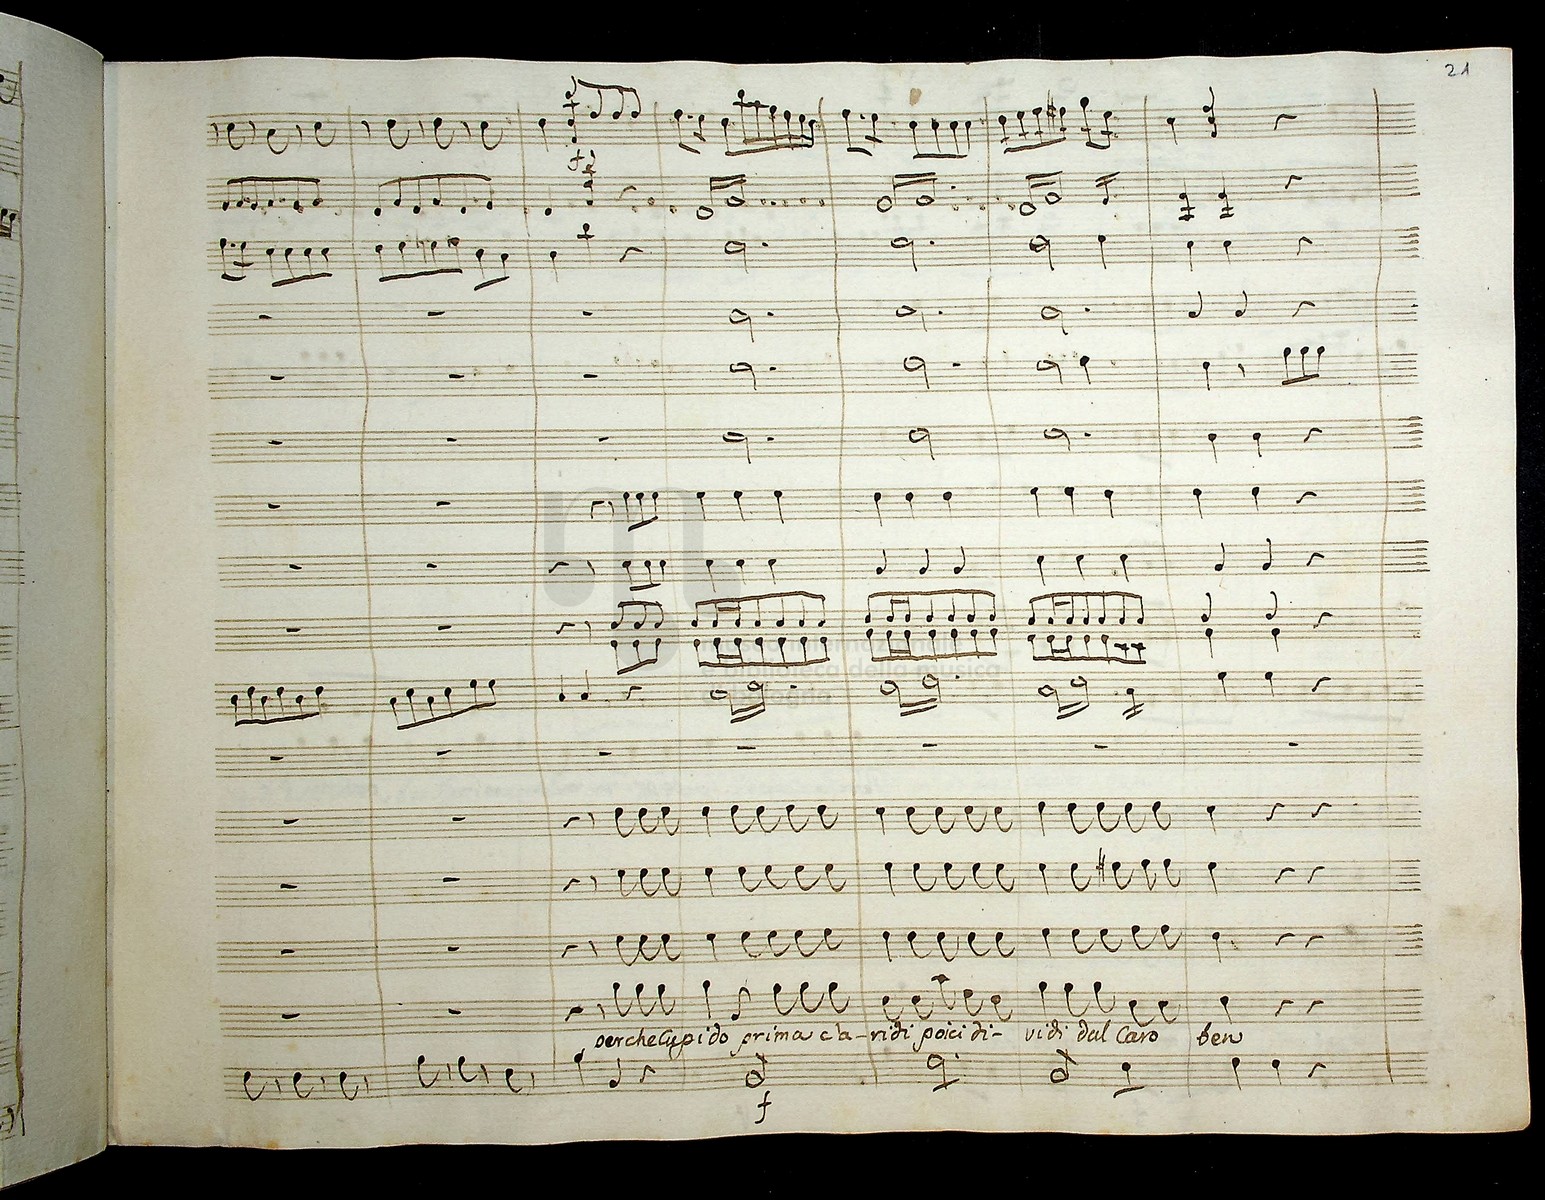 21
f
museo internazionale
e biblioteca della musica
perche Cupido prima c'a-ridi poi ci di- vidi dal Caro ben
f